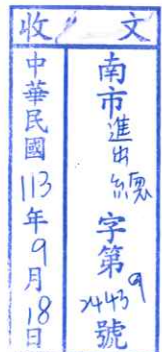 收文
南市進出總字第24439號
中華民國113年9月18日